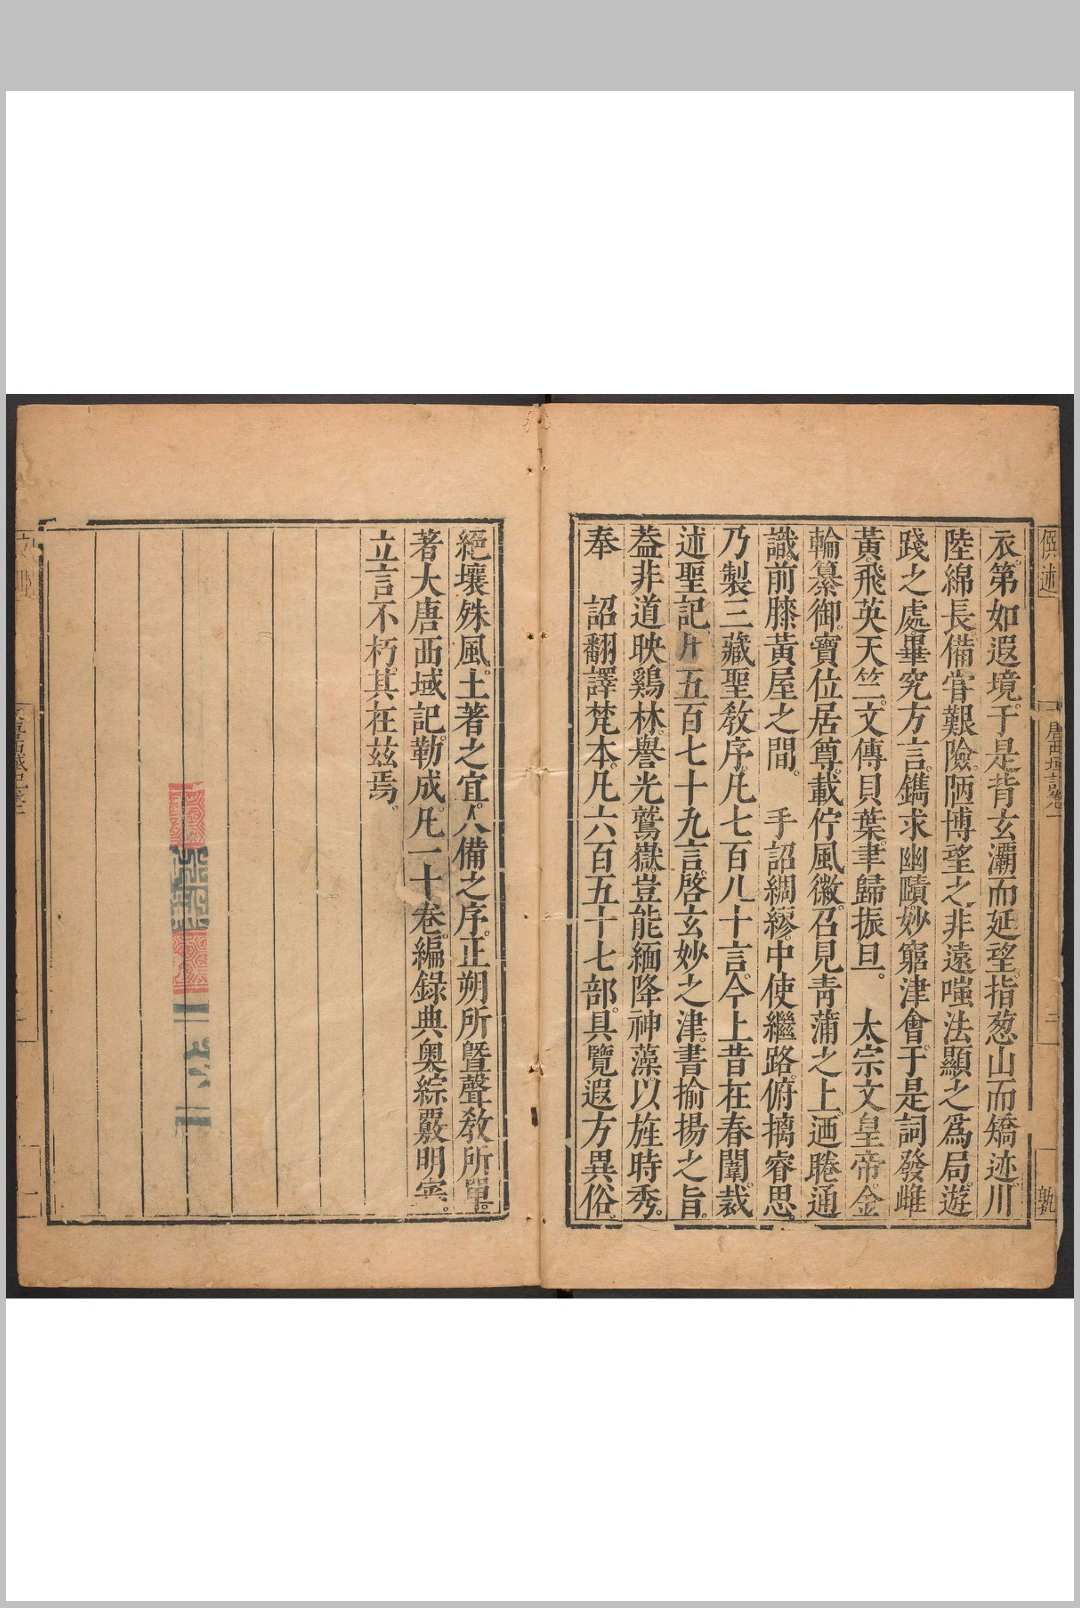 衣。第如遐境。于是背玄灞而延望。指葱山而矯迹。川
陸綿長備甞艱險。陋博望之非遠嗤法顯之爲局。遊
踐之處畢究方言。鐫求幽賾。妙窮津會。于是詞發雌
黃飛英天竺。文傳貝葉。聿歸振旦。　太宗文皇帝。金
輪纂御。寶位居尊。載佇風徽。召見靑蒲之上迺睠通
識。前膝黃屋之間。　手詔綢繆。中使繼路。俯摛睿思。
乃製三藏聖敎序。凡七百八十言。今上昔在春闈。裁
述聖記。凡五百七十九言。啓玄妙之津。書揄揚之旨。
葢非道映鷄林。譽光鷲嶽。豈能緬降神藻。以旌時秀。
奉　詔翻譯梵本。凡六百五十七部。具覽遐方異俗。
絕壤殊風。土著之宜。人備之序。正朔所曁聲敎所覃。
著大唐西域記。勒成凡一十卷。編錄典奥綜覈明審。
立言不朽。其在茲焉。